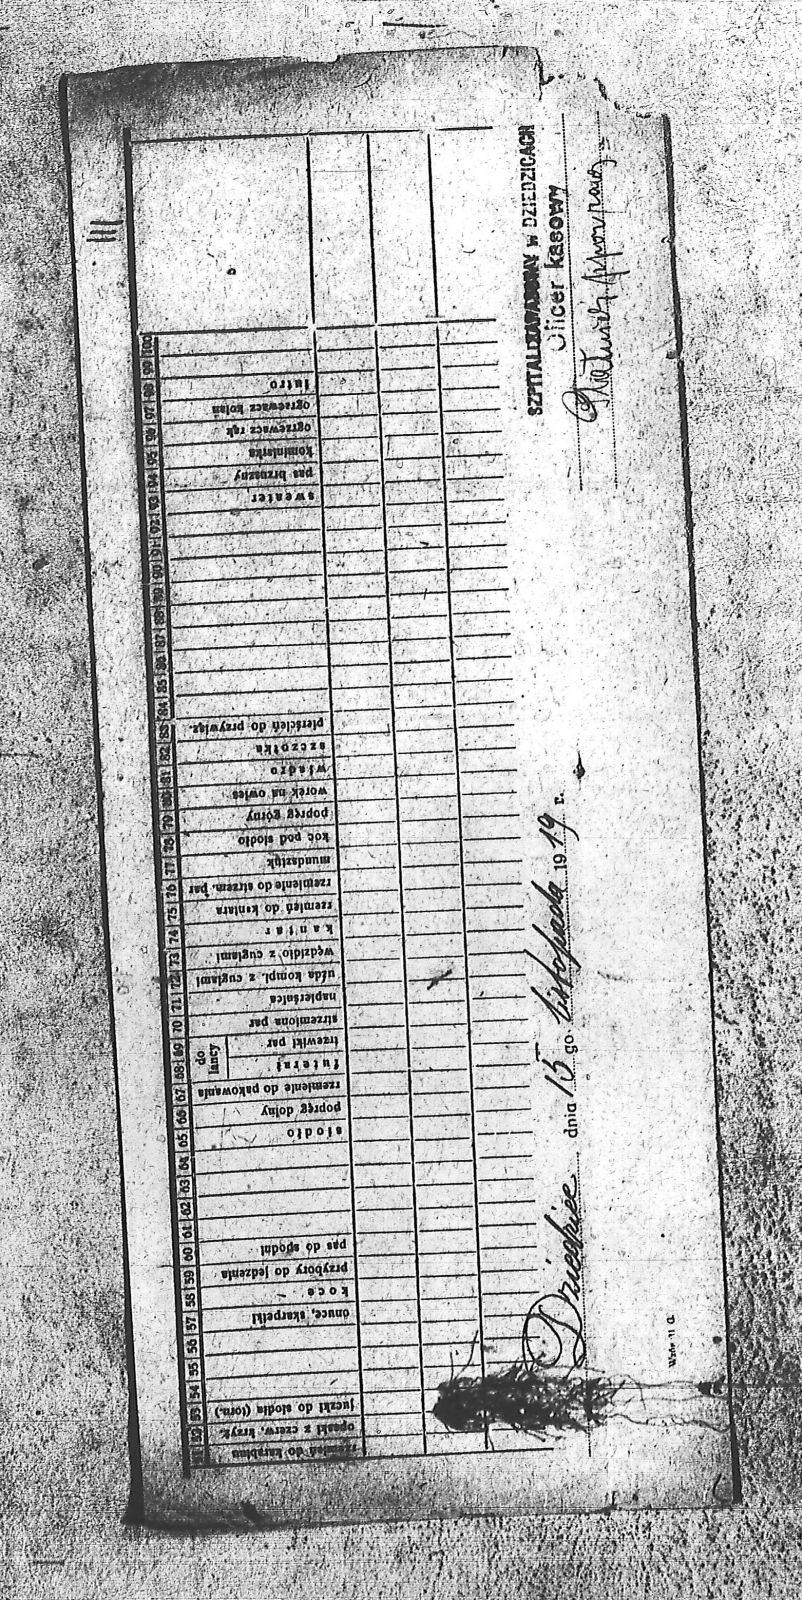 III
51 rzemień do karabina
52 opaski z czerw. krzyż.
53 juczki do siodła (torn.)
54
55
56
57 onuce, skarpetki
58 koce
59 przybory do jedzenia
60 pas do spodni
61
62
63
64
65 siodło
66 popręg dolny
67 rzemienie do pakowania
do lancy
68 futerał
69 trzewiki par
70 strzemiona par
71 napierśnica
72 uzda kompl. z cuglami
73 wędzidło z cuglami
74 kantar
75 rzemień do kantara
76 rzemienie do strzem. par
77 mundsztuk
78 koc pod siodło
79 popręg górny
80 worek na owies
81 wiadro
82 szczotka
83 pierścień do przywiąz.
84
85
86
87
88
89
90
91
92
93 sweater
94 pas brzuszny
95 kominiarka
96 ogrzewacz rąk
97 ogrzewacz kolan
98 futro
99
100
Dziedzice dnia 15 go listopada 1919 r.
SZPITAL W DZIEDZICACH
Oficer kasowy
Wzór 11 G.